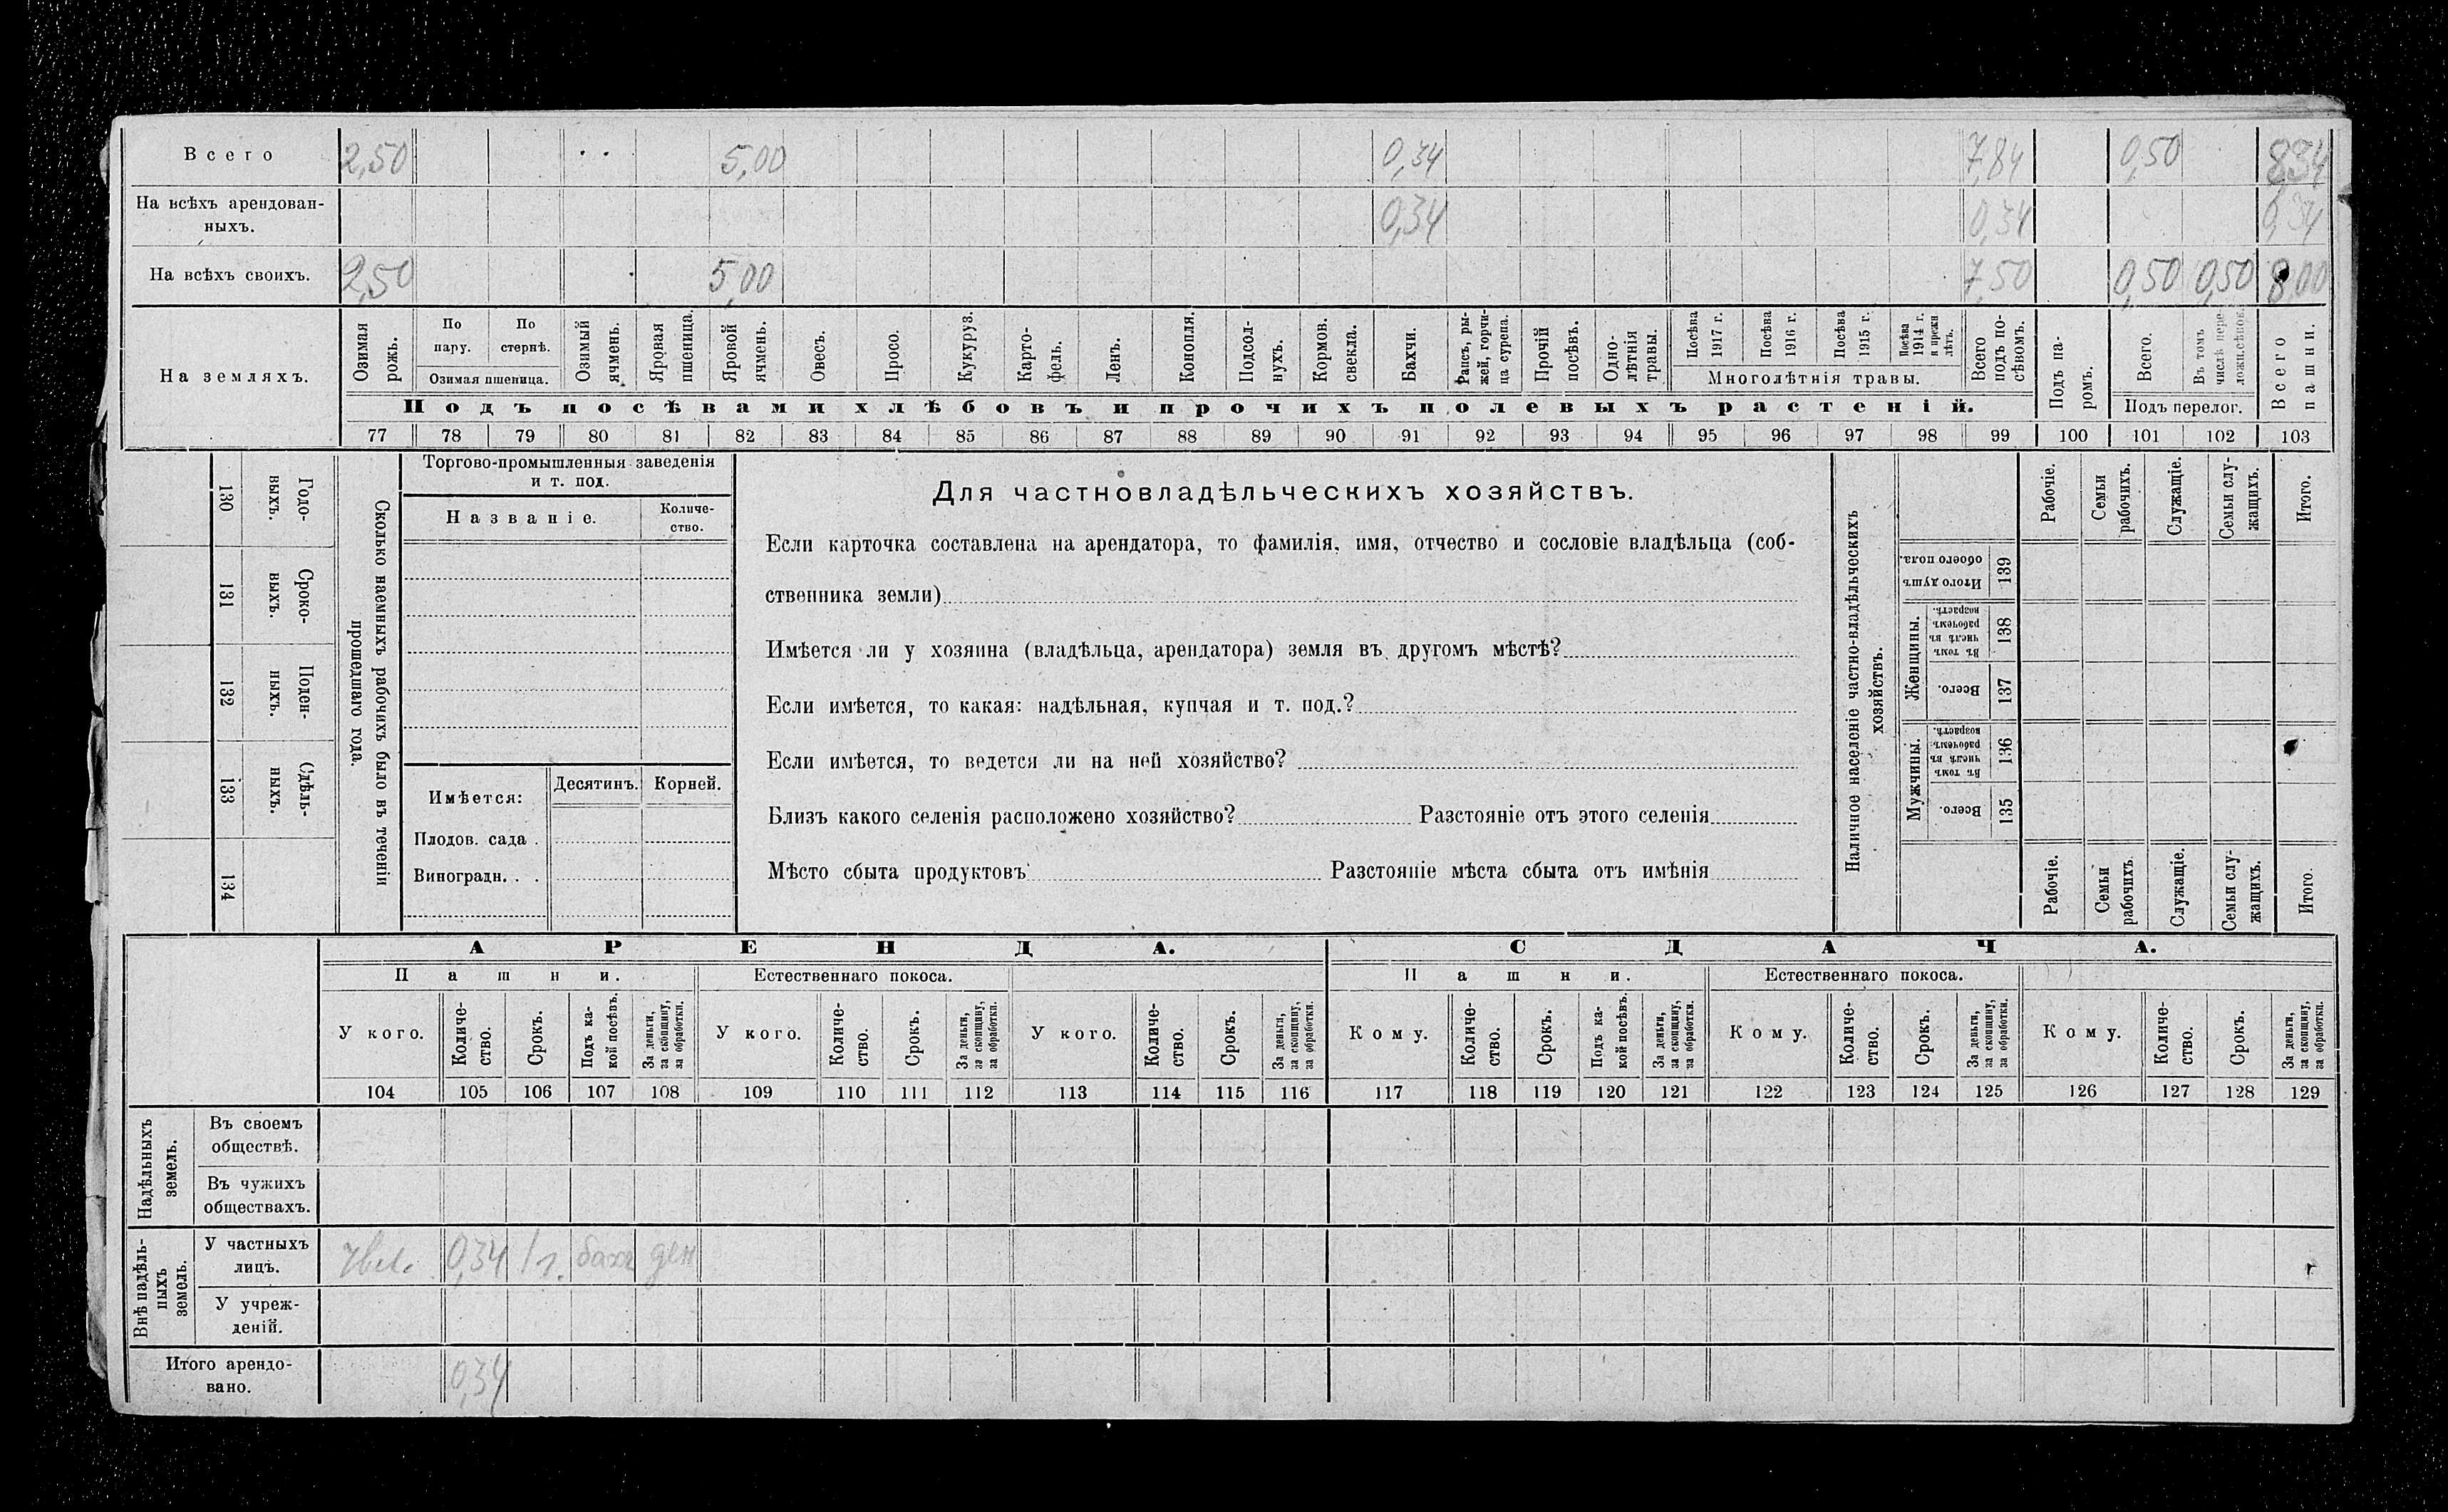 Всего 2,50 5,00 0,34 7,84 0,50 8,34
На всѣхъ арендован-
ныхъ. 0,34 0,34 0,34
На всѣхъ своихъ. 2,50 5,00 7,50 0,50 0,50 8,00
На земляхъ.
Озимая рожь.
По пару.
По стернѣ.
Озимая пшеница.
Озимый ячмень.
Яровая пшеница.
Яровой ячмень.
Овесъ.
Просо.
Кукуруз.
Карто-
фель.
Ленъ.
Конопля.
Подсол-
нухъ.
Кормов. свекла.
Бахчи.
Рапсъ, ры-
жей, горчи-
ца сурепа.
Прочій посѣвъ.
Одно-
лѣтнія травы.
Посѣва 1917 г.
Посѣва 1916 г.
Посѣва 1915 г.
Посѣва 1914 г. и прежн лѣтъ.
Многолѣтнія травы.
Всего подъ по-
сѣвомъ.
Подъ посѣвами хлѣбовъ и прочихъ полевыхъ растеній.
Подъ па-
ромъ.
Всего.
Въ томъ числѣ пере-
ложн.сѣнок.
Подъ перелог.
Всего пашни.
77 78 79 80 81 82 83 84 85 86 87 88 89 90 91 92 93 94 95 96 97 98 99 100 101 102 103
130 Годо-
выхъ.
131 Сроко-
выхъ.
132 Поден-
ныхъ.
133 Сдѣль-
ныхъ.
134
Сколько наемныхъ рабочихъ было въ теченіи
прошедшаго года.
Торгово-промышленныя заведенія
и т. под.
Названіе.
Количе-
ство.
Имѣется:
Десятинъ.
Корней.
Плодов. сада .
Виноградн. . .
Для частновладѣльческихъ хозяйствъ.
Если карточка составлена на арендатора, то фамилія, имя, отчество и сословіе владѣльца (соб-
ственника земли)
Имѣется ли у хозяина (владѣльца, арендатора) земля въ другомъ мѣстѣ?
Если имѣется, то какая: надѣльная, купчая и т. под.?
Если имѣется, то ведется ли на ней хозяйство?
Близъ какого селенія расположено хозяйство? Разстояніе отъ этого селенія
Мѣсто сбыта продуктовъ Разстояніе мѣста сбыта отъ имѣнія
Наличное населеніе частно-владѣльческихъ
хозяйствъ.
Рабочіе.
Семьи рабочихъ.
Служащіе.
Семьи слу-
жащихъ.
Итого.
Итого душъ обоего пола. 139
Женщины.
Въ томъ числѣ въ рабочемъ возрастѣ. 138
Всего. 137
Мужчины.
Въ томъ числѣ въ рабочемъ возрастѣ. 136
Всего. 135
Рабочіе.
Семьи рабочихъ.
Служащіе.
Семьи слу-
жащихъ.
Итого.
АРЕНДА. СДАЧА.
Пашни. Естественнаго покоса. Пашни. Естественнаго покоса.
У кого.
Количе-
ство.
Срокъ.
Подъ ка-
кой посѣвъ.
За деньги, за скопщину, за обработки.
У кого.
Количе-
ство.
Срокъ.
За деньги, за скопщину, за обработки.
У кого.
Количе-
ство.
Срокъ.
За деньги, за скопщину, за обработки.
Кому.
Количе-
ство.
Срокъ.
Подъ ка-
кой посѣвъ.
За деньги, за скопщину, за обработки.
Кому.
Количе-
ство.
Срокъ.
За деньги, за скопщину, за обработки.
Кому.
Количе-
ство.
Срокъ.
За деньги, за скопщину, за обработки.
104 105 106 107 108 109 110 111 112 113 114 115 116 117 118 119 120 121 122 123 124 125 126 127 128 129
Надѣльныхъ земель.
Въ своемъ
обществѣ.
Въ чужихъ
обществахъ.
Внѣ надѣль-
ныхъ земель.
У частныхъ
лицъ. 0,34 1 г. бахч ден
У учреж-
деній.
Итого арендо-
вано. 0,34